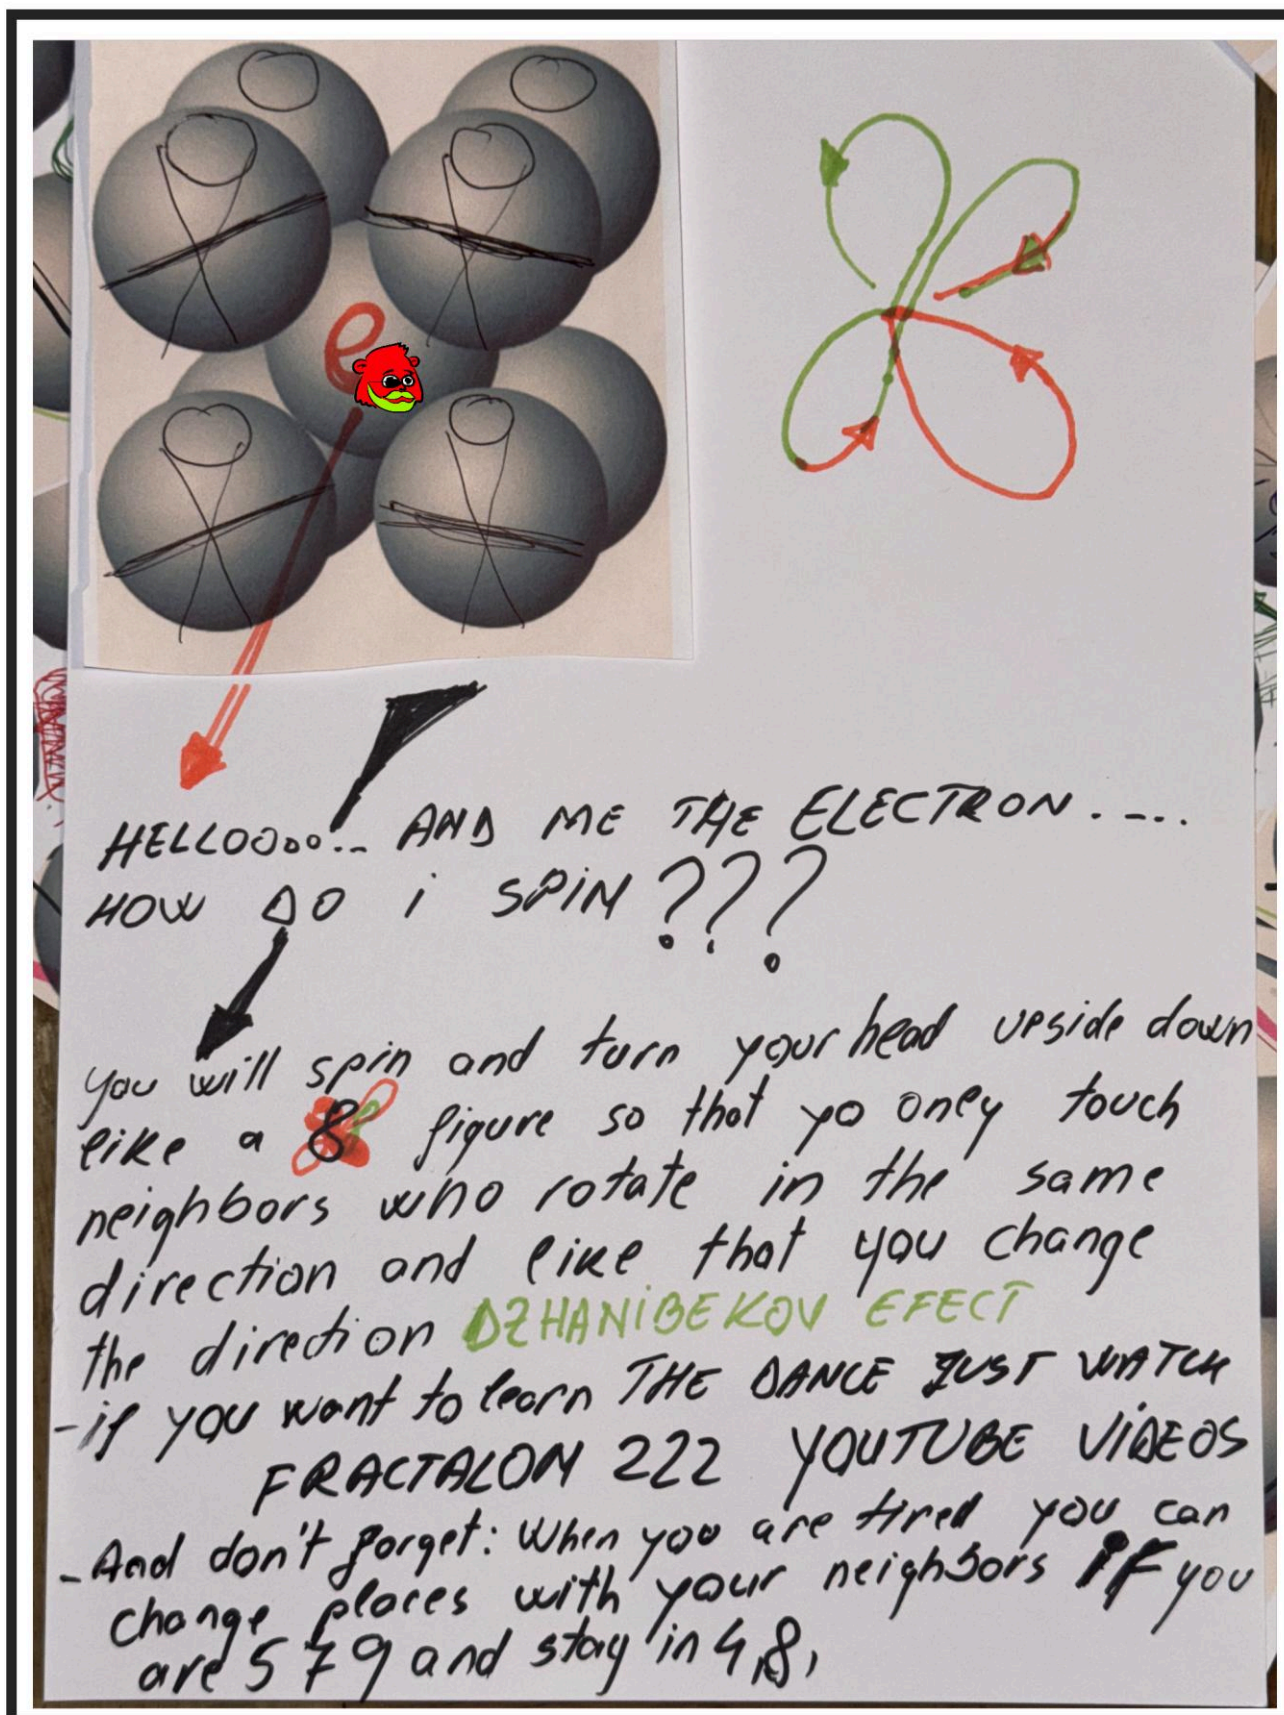 e
HELLOOOO... AND ME THE ELECTRON.....
HOW DO i SPIN???
you will spin and turn your head upside down
like a 8 figure so that yo only touch
neighbors who rotate in the same
direction and like that you change
the direction DZHANIBEKOV EFECT
- if you want to learn THE DANCE JUST WATCH
FRACTALON 222 YOUTUBE ViDEOS
- And don't forget: When you are tired you can
change places with your neighbors iF you
are 5 7 9 and stay in 4,8,